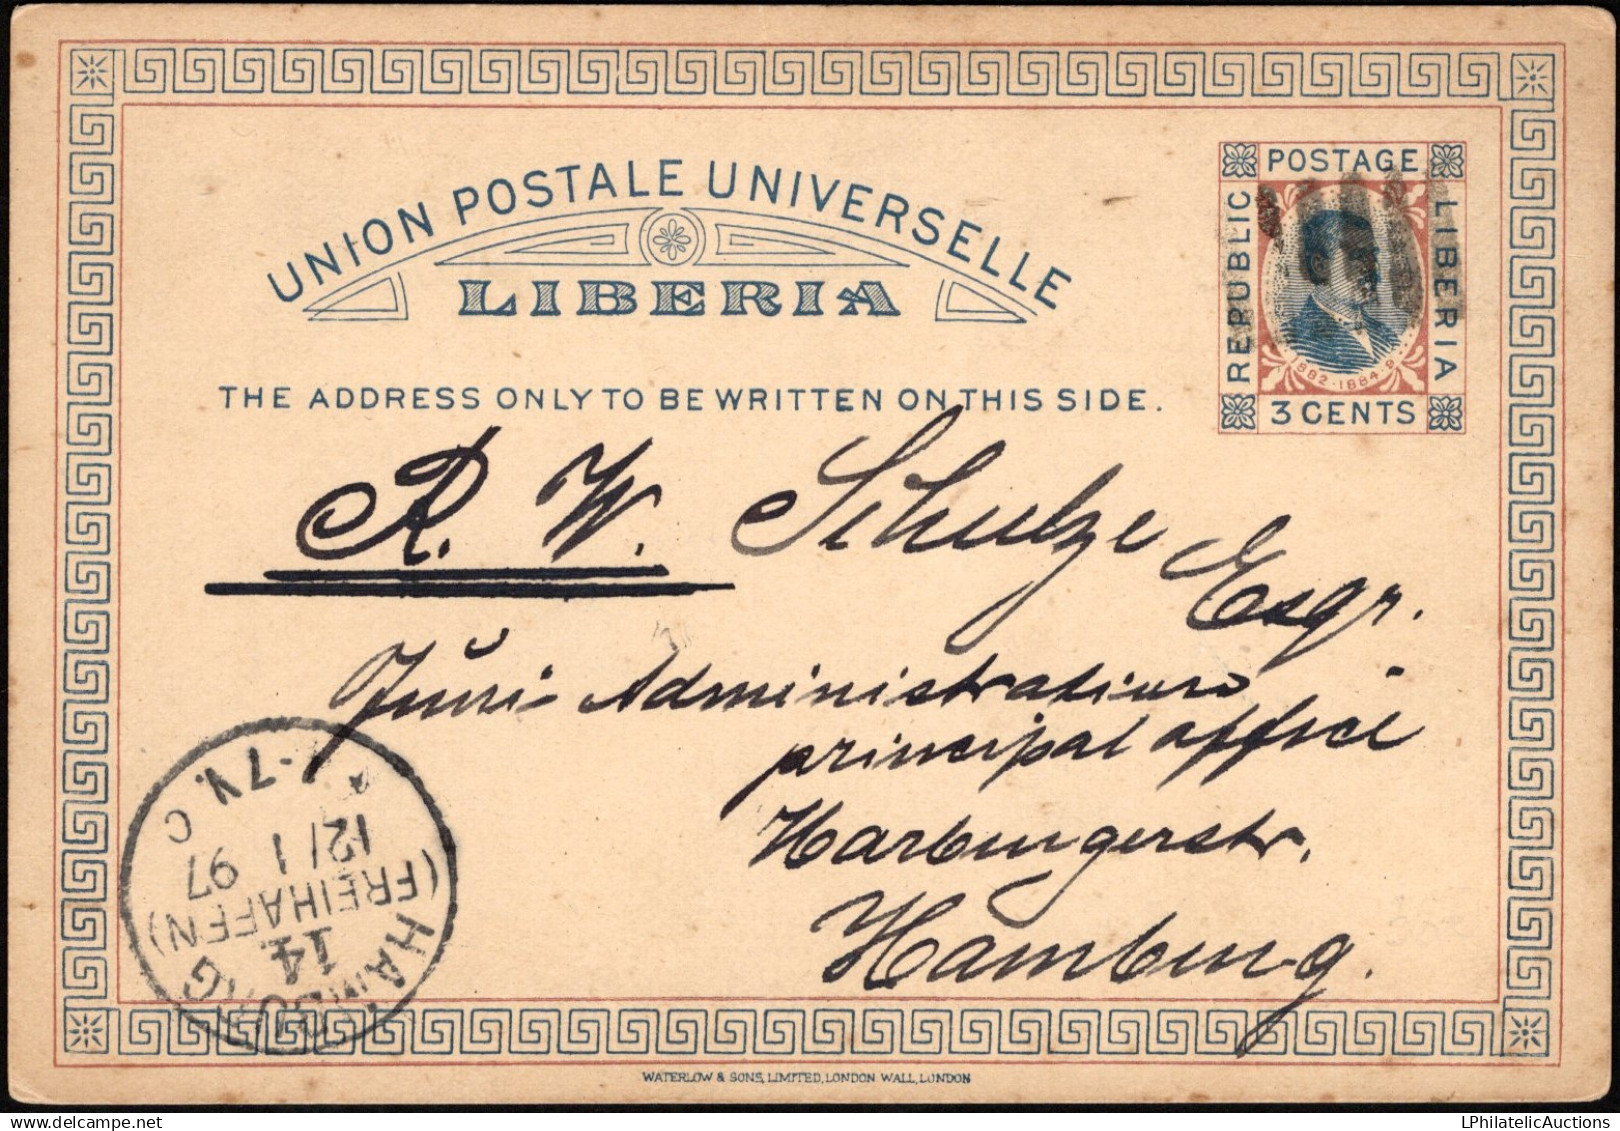 UNION POSTALE UNIVERSELLE
LIBERIA
THE ADDRESS ONLY TO BE WRITTEN ON THIS SIDE.
POSTAGE
REPUBLIC
LIBERIA
1882·1884·9
3 CENTS
R. W. Schulze Esqr.
Administration
principal office
Harburgerstr.
Hamburg.
HAMBURG
14
(FREIHAFEN)
12/1
97
7-7N. C
WATERLOW & SONS, LIMITED, LONDON WALL, LONDON
LPhilatelicAuctions